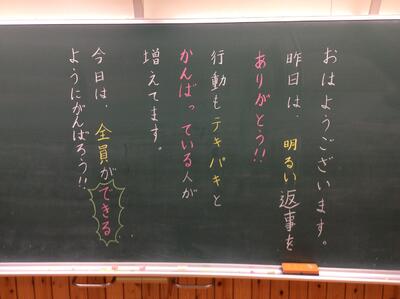 おはようございます。
昨日は、明るい返事を
ありがとう!!
行動もテキパキと
がんばっている人が
増えてます。
今日は、全員ができる
ようにがんばろう!!